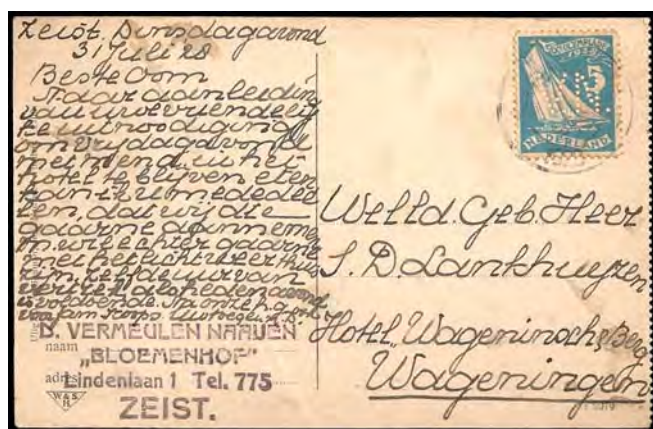 Zeist. Dinsdagavond
31 Juli 28
Beste Oom
Naar aanleiding
van uw vriendelijke
uitnoodiging
om Vrijdagavond
met in het
hotel te blijven eten
kan ik u mededeelen
len, dat wij die
gaarne aannemen
M. wil echter gaarne
met het licht weer thuis
zijn
voldoende. Na onze h. gr.
voor fam
D. VERMEULEN NAAIJEN
naam „BLOEMENHOF"
adres Lindenlaan 1 Tel. 775
ZEIST.
W & S
5
NEDERLAND
WelEd. Geb. Heer
S. D. Lankhuyzen
Hotel „Wageningsch Berg
Wageningen